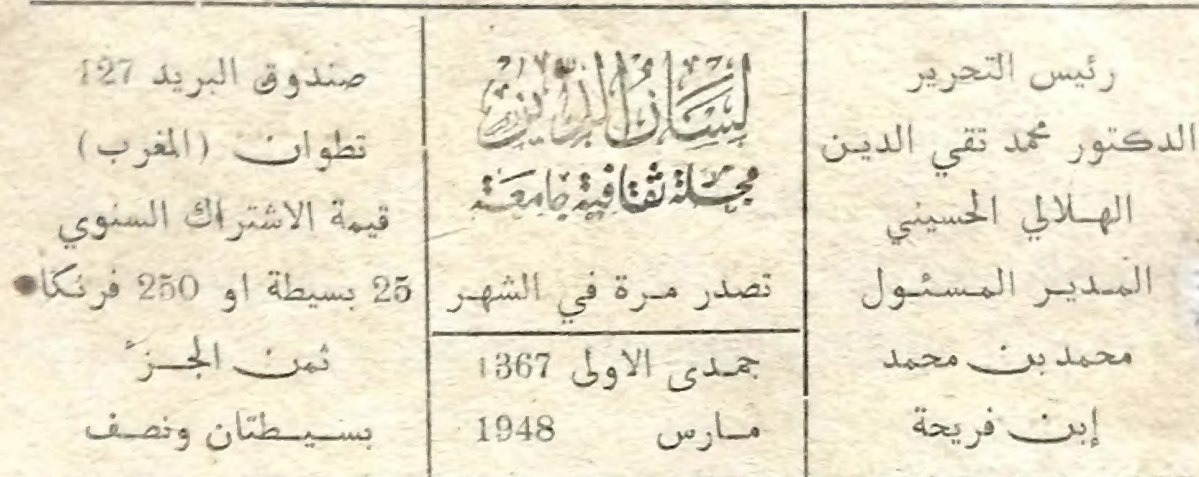 رئيس التحرير
الدكتور محمد تقي الدين
الهلالي الحسيني
المدير المسئول
محمد بن محمد
إبن فريحة
لسان الدين
مجلة ثقافية جامعة
تصدر مرة في الشهر
جمدى الاولى 1367
مارس 1948
صندوق البريد 127
تطوان (المغرب)
قيمة الاشتراك السنوي
25 بسيطة او 250 فرنكا
ثمن الجزء
بسيطتان ونصف